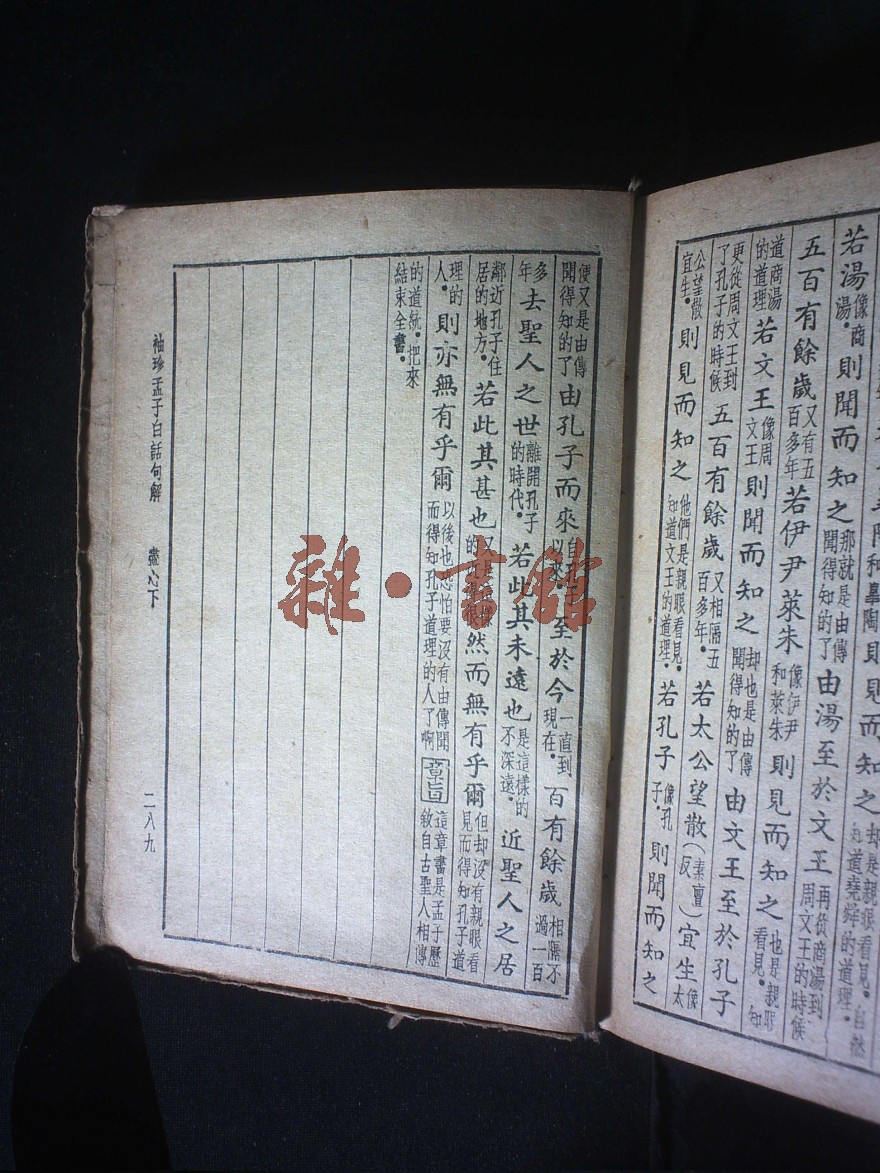 和皐陶則見而知之却是親眼看見。自然知道堯舜的道理。
若湯像商湯。則聞而知之那就是由傳聞得知的了由湯至於文王再從商湯到周文王的時候
五百有餘歲又有五百多年若伊尹萊朱像伊尹和萊朱則見而知之也是親眼看見。知
道商湯的道理若文王像周文王則聞而知之却也是由傳聞得知的了由文王至於孔子
更從周文王到了孔子的時候五百有餘歲又相隔五百多年。若太公望散（素亶反）宜生像太
公望散宜生。則見而知之他們是親眼看見。知道文王的道理。若孔子像孔子。則聞而知之
便又是由傳聞得知的了由孔子而來自以來。至於今一直到現在。百有餘歲相隔不過一百
多年去聖人之世離開孔子的時代。若此其未遠也是這樣的不深遠。近聖人之居
鄰近孔子住居的地方。若此其甚也又的然而無有乎爾但却沒有親眼看見而得知孔子道
理的人。則亦無有乎爾以後也恐怕要沒有由傳聞而得知孔子道理的人了啊章旨這章書是孟子歷敘自古聖人相傳
的道統。把來結束全書。
袖珍孟子白話句解 盡心下 二八九
雜·書館